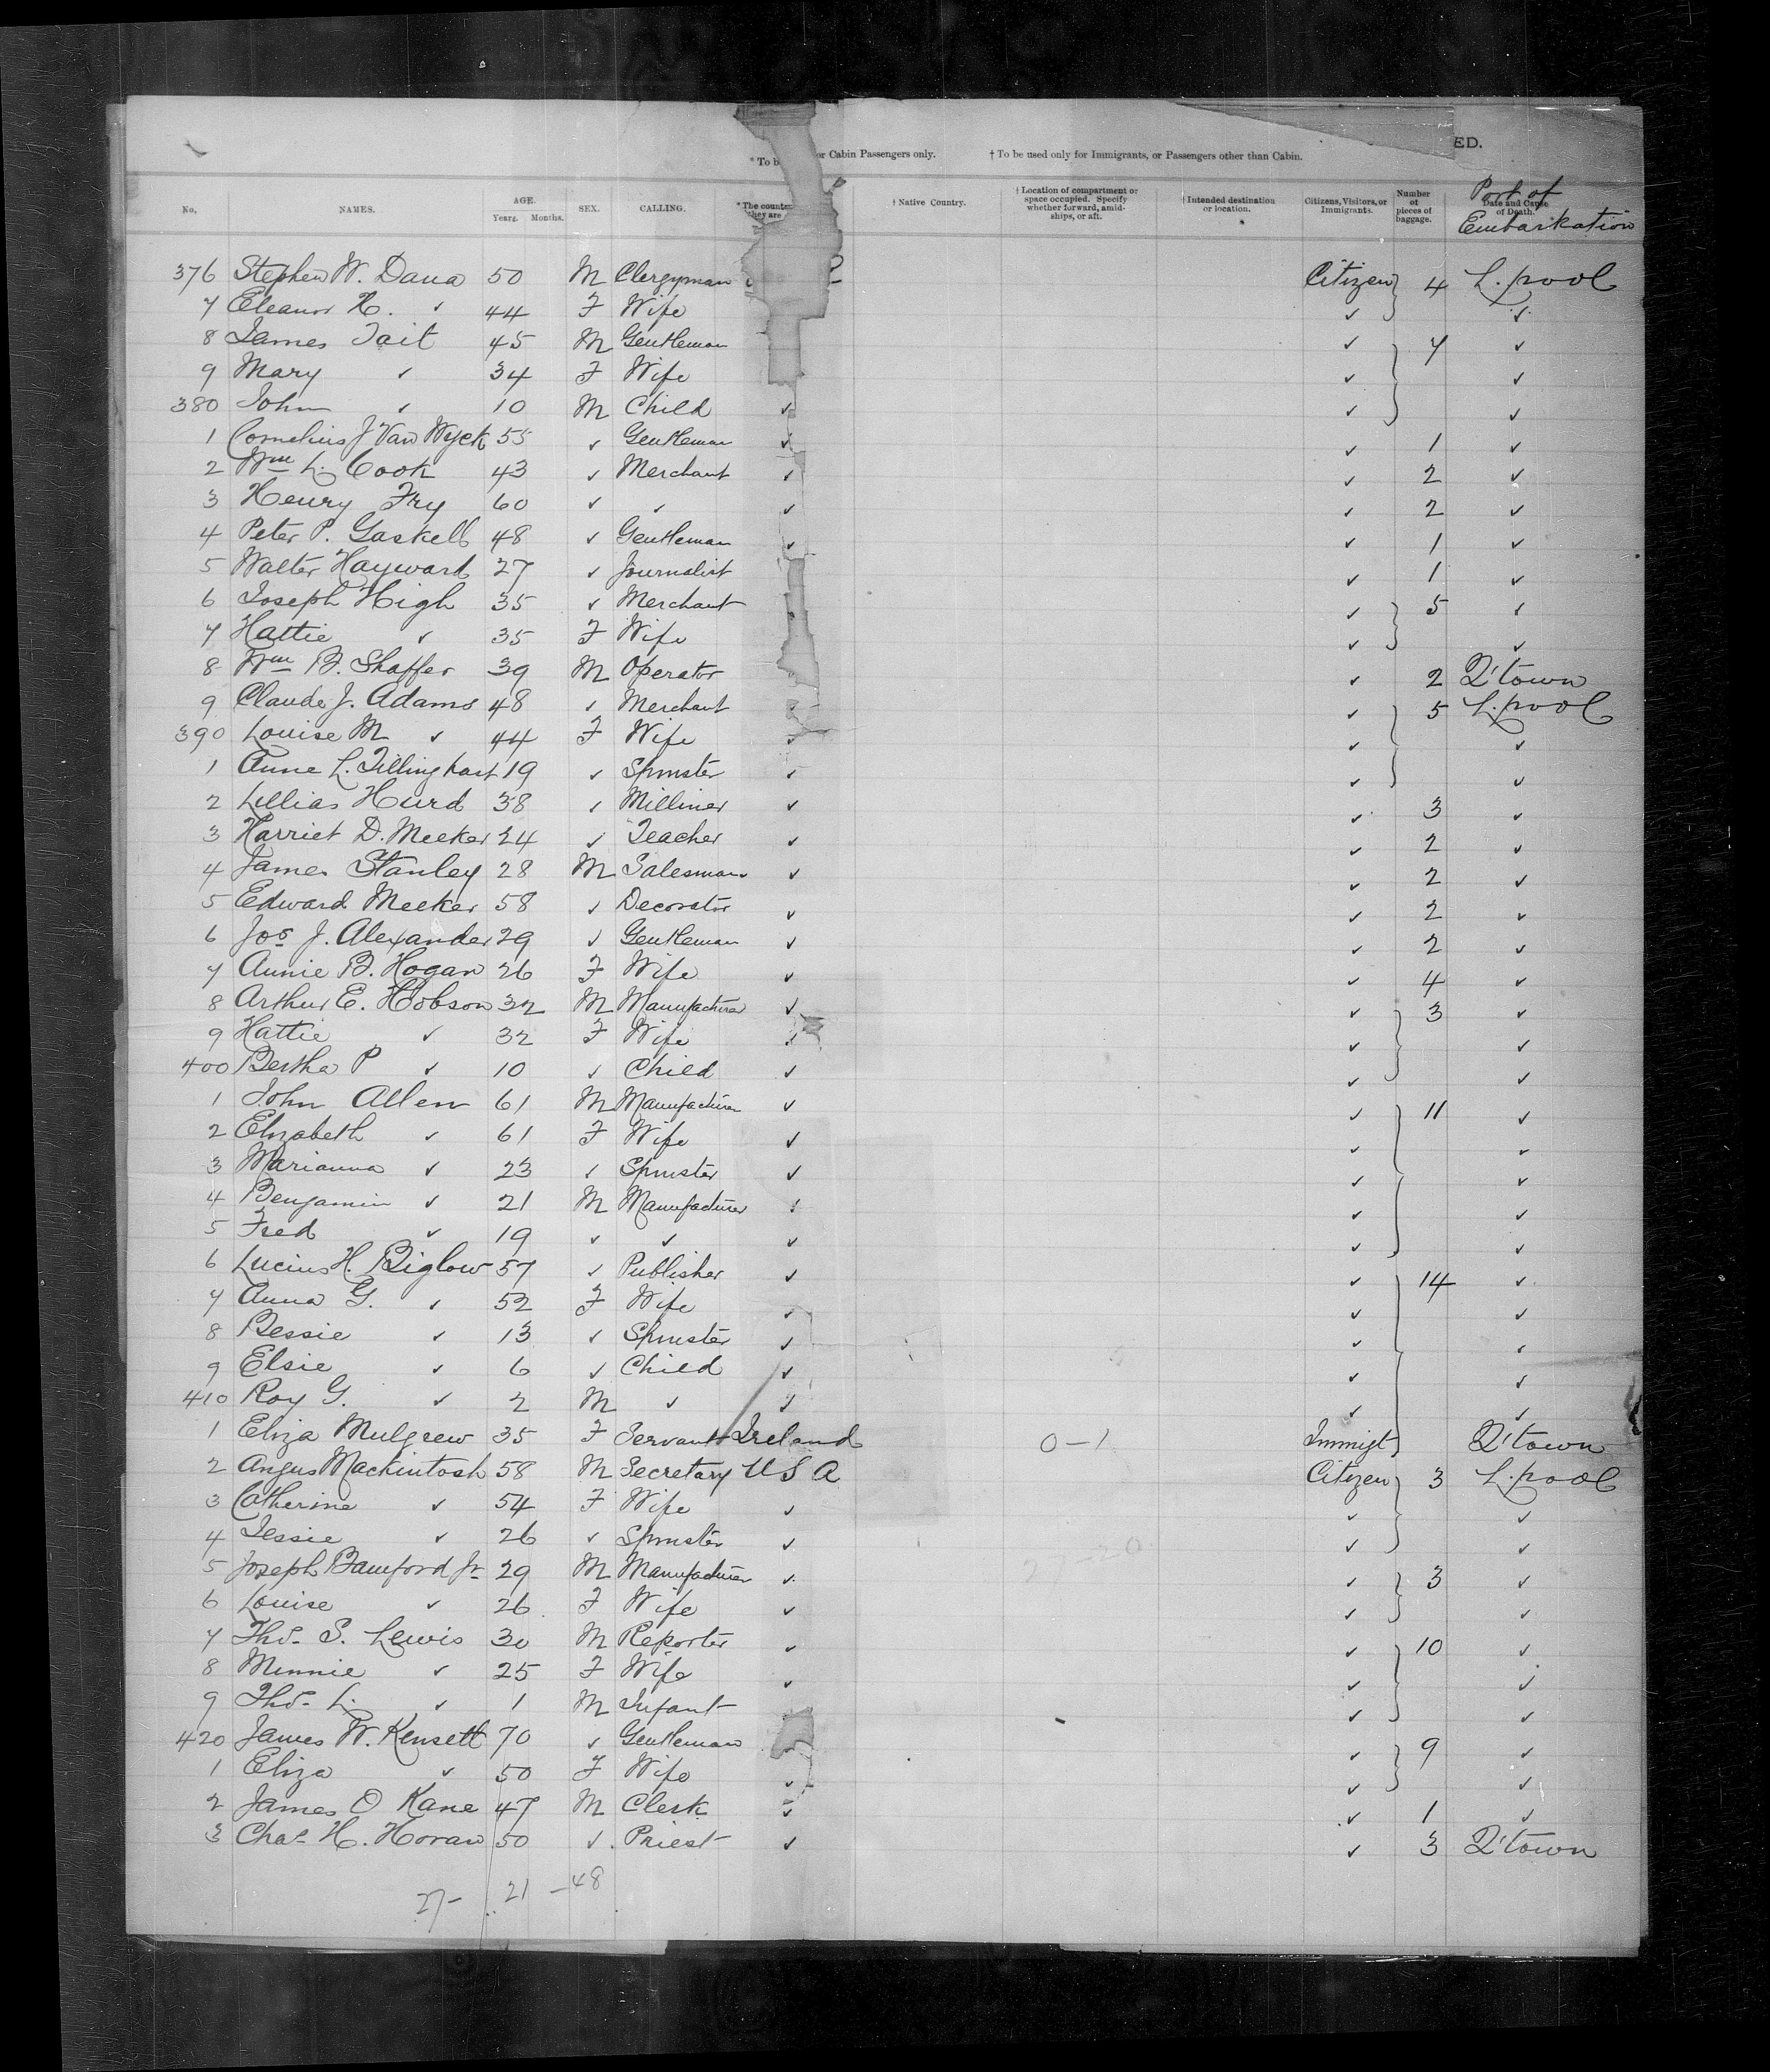 ED.
* To b or Cabin Passengers only. † To be used only for Immigrants, or Passengers other than Cabin.
No. NAMES. AGE. Years. Months. SEX. CALLING. * The countr they are † Native Country. † Location of compartment or space occupied. Specify whether forward, amid-ships, or aft. † Intended destination or location. Citizens, Visitors, or Immigrants. Number of pieces of baggage. Date and Cause of Death. Port of Embarkation
376 Stephen W. Dana 50 M Clergyman Citizen } 4 L.pool
7 Eleanor H. ✓ 44 F Wife ✓ ✓
8 James Tait 45 M Gentleman ✓ } 7 ✓
9 Mary ✓ 34 F Wife ✓ ✓
380 John ✓ 10 M Child ✓ ✓ ✓
1 Cornelius J Van Wyck 55 ✓ Gentleman ✓ ✓ 1 ✓
2 Wm L. Cook 43 ✓ Merchant ✓ ✓ 2 ✓
3 Henry Fry 60 ✓ ✓ ✓ ✓ 2 ✓
4 Peter P. Gaskell 48 ✓ Gentleman ✓ ✓ 1 ✓
5 Walter Hayward 27 ✓ Journalist ✓ 1 ✓
6 Joseph High 35 ✓ Merchant ✓ } 5 ✓
7 Hattie ✓ 35 F Wife ✓ ✓
8 Wm B. Shaffer 39 M Operator ✓ 2 Q'town
9 Claude J. Adams 48 ✓ Merchant ✓ ✓ } 5 L.pool
390 Louise M ✓ 44 F Wife ✓ ✓ ✓
1 Anne L. Tillinghast 19 ✓ Spinster ✓ ✓ ✓
2 Lillias Hurd 38 ✓ Milliner ✓ ✓ 3 ✓
3 Harriet D. Meeker 24 ✓ Teacher ✓ ✓ 2 ✓
4 James Stanley 28 M Salesman ✓ ✓ 2 ✓
5 Edward Meeker 58 ✓ Decorator ✓ ✓ 2 ✓
6 Jos J. Alexander 29 ✓ Gentleman ✓ ✓ 2 ✓
7 Annie B. Hogan 26 F Wife ✓ ✓ 4 ✓
8 Arthur E. Hobson 32 M Manufacturer ✓ ✓ } 3 ✓
9 Hattie ✓ 32 F Wife ✓ ✓ ✓
400 Bertha P ✓ 10 ✓ Child ✓ ✓ ✓
1 John Allen 61 M Manufacturer ✓ ✓ } 11 ✓
2 Elizabeth ✓ 61 F Wife ✓ ✓ ✓
3 Marianna ✓ 23 ✓ Spinster ✓ ✓ ✓
4 Benjamin ✓ 21 M Manufacturer ✓ ✓ ✓
5 Fred ✓ 19 ✓ ✓ ✓ ✓ ✓
6 Lucius H. Biglow 57 ✓ Publisher ✓ ✓ } 14 ✓
7 Anna G. ✓ 52 F Wife ✓ ✓ ✓
8 Bessie ✓ 13 ✓ Spinster ✓ ✓ ✓
9 Elsie ✓ 6 ✓ Child ✓ ✓ ✓
410 Roy G. ✓ 2 M ✓ ✓ ✓ ✓
1 Eliza Mulgrew 35 F Servant Ireland 0-1 Immigt Q'town
2 Angus Mackintosh 58 M Secretary U S A Citizen } 3 L.pool
3 Catherine ✓ 54 F Wife ✓ ✓ ✓
4 Jessie ✓ 26 ✓ Spinster ✓ ✓ ✓
5 Joseph Bamford Jr 29 M Manufacturer ✓ ✓ } 3 ✓
6 Louise ✓ 26 F Wife ✓ ✓ ✓
7 Thos. S. Lewis 30 M Reporter ✓ ✓ } 10 ✓
8 Minnie ✓ 25 F Wife ✓ ✓ ✓
9 Thos. L. ✓ 1 M Infant ✓ ✓
420 James W. Kensett 70 ✓ Gentleman ✓ } 9 ✓
1 Eliza ✓ 50 F Wife ✓ ✓ ✓
2 James O Kane 47 M Clerk ✓ ✓ 1 ✓
3 Chas. H. Horan 50 ✓ Priest ✓ ✓ 3 Q'town
27- 21 -48